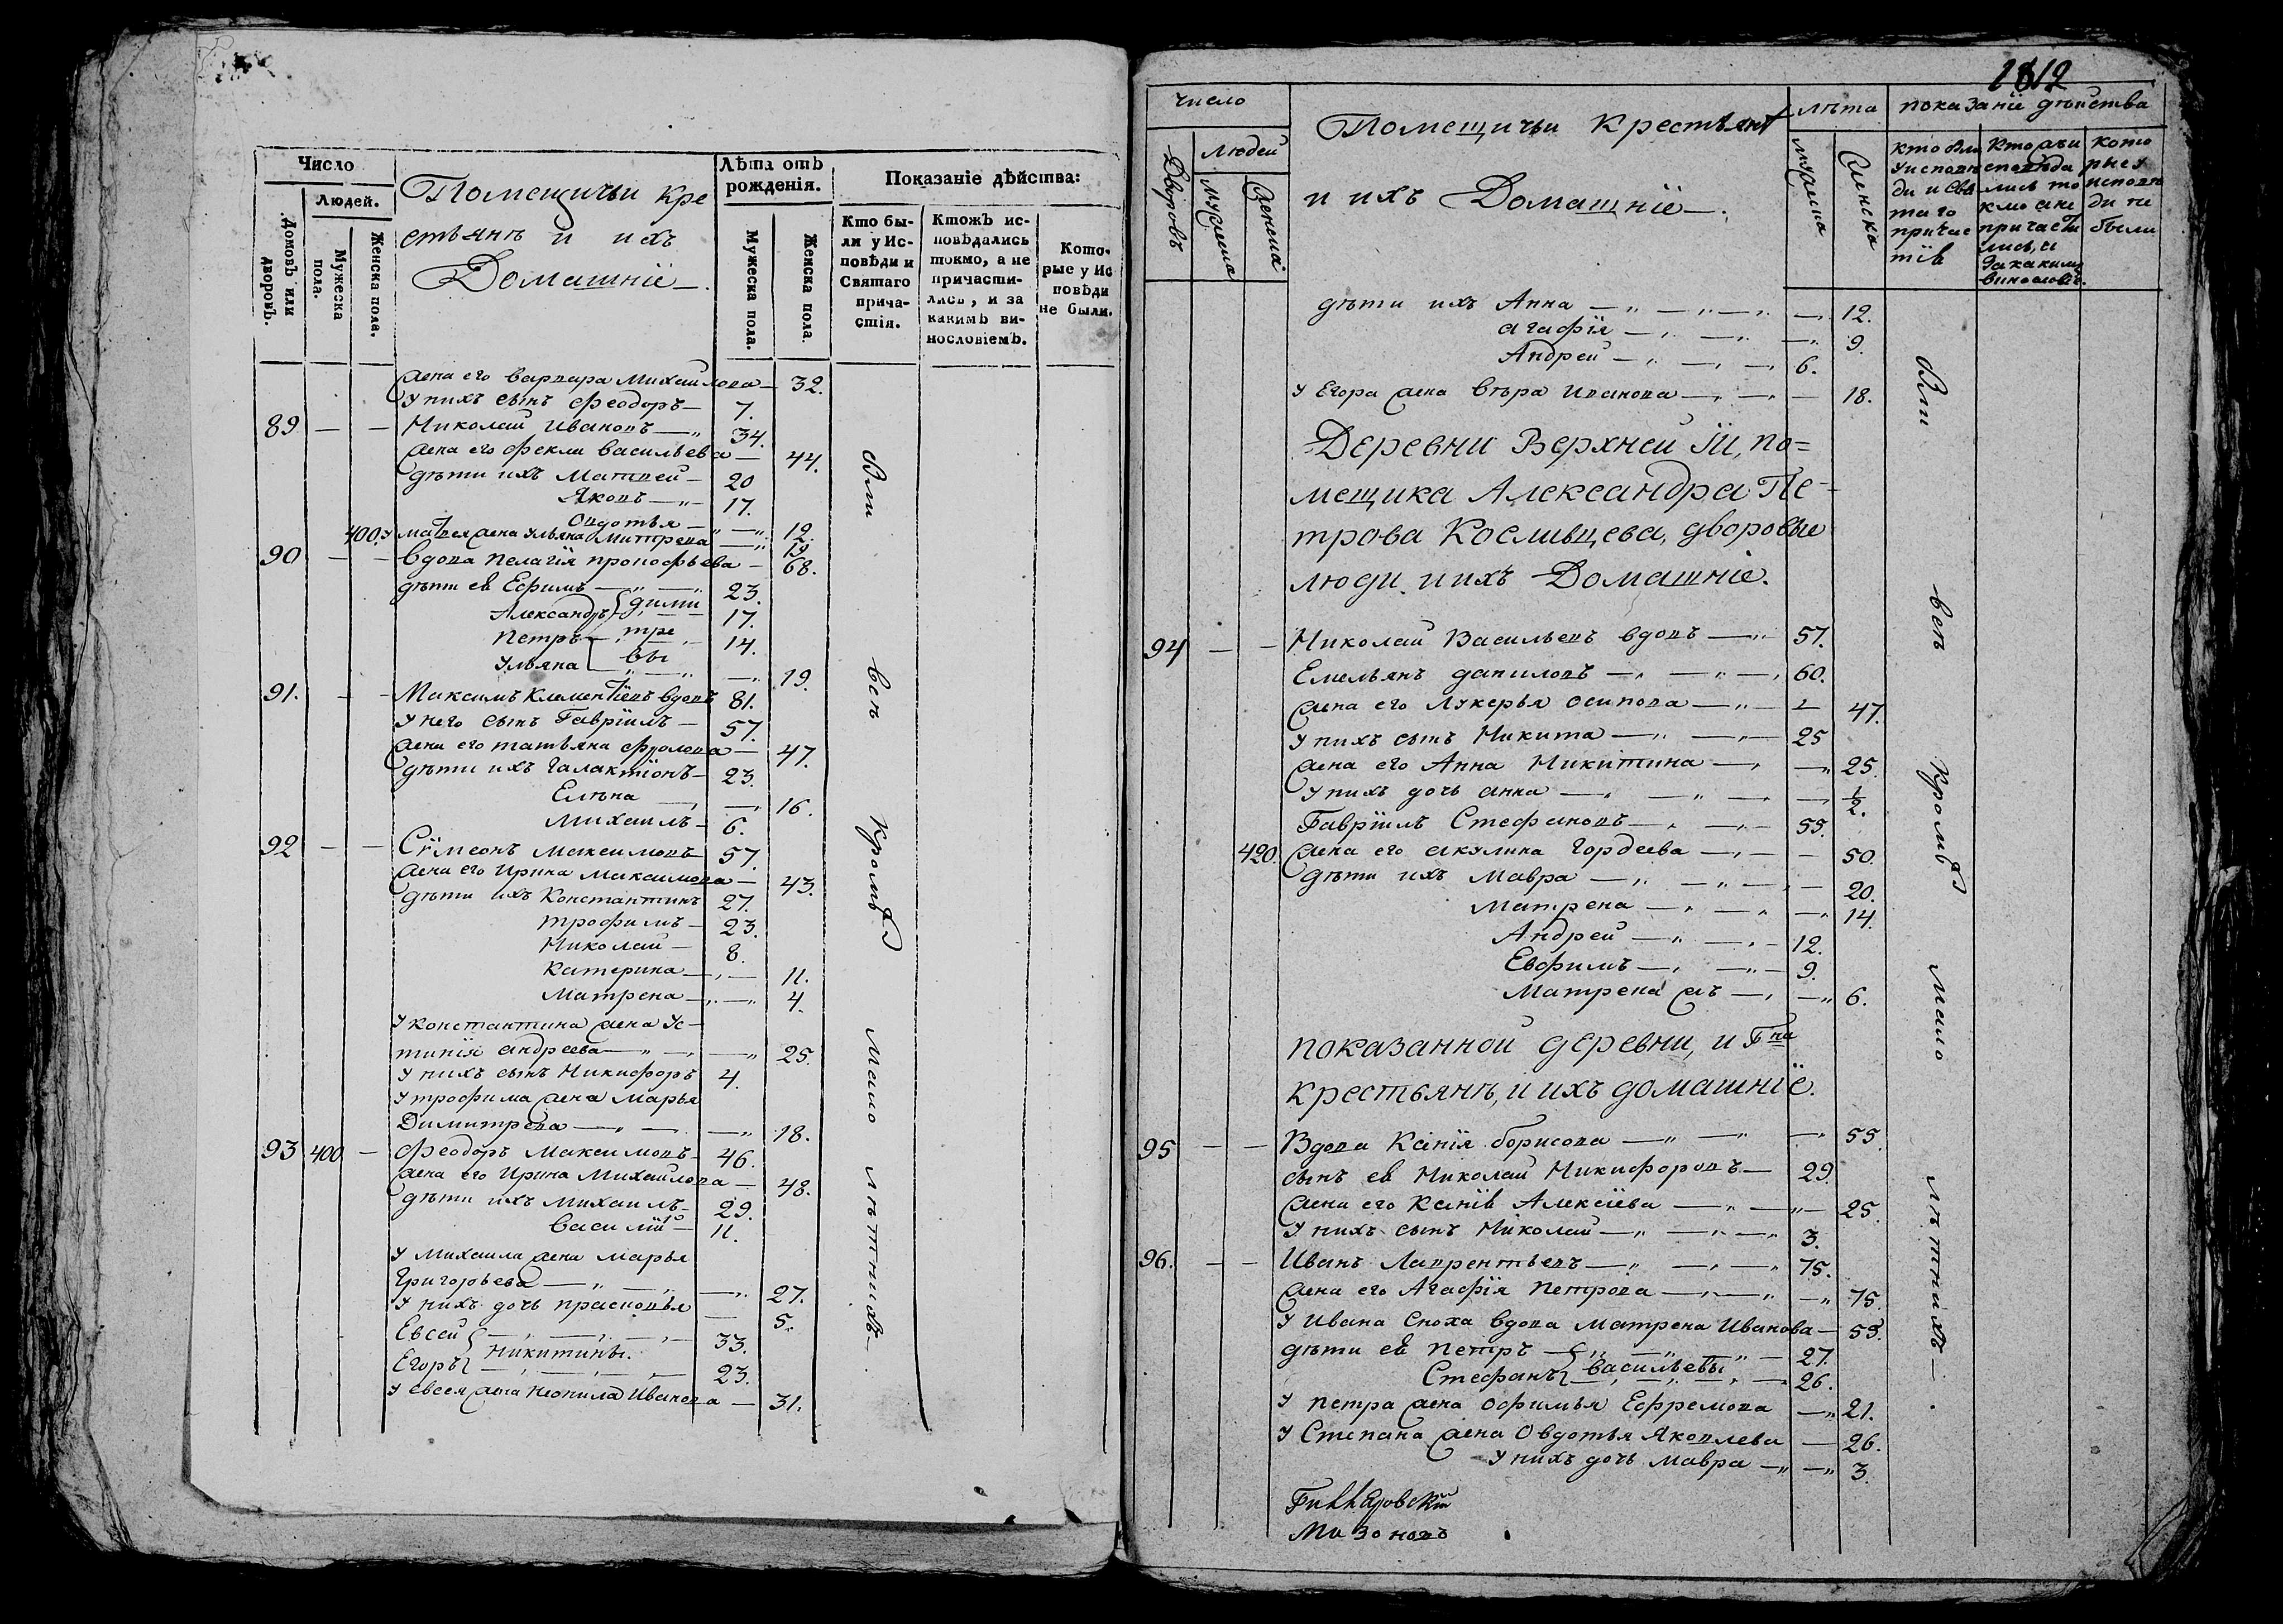 Число
Людей.
Домовъ или дворовъ.
Мужеска пола.
Женска пола.
Помещичьи кре
стьянъ и ихъ
Домашніе
Лѣта отъ рожденія.
Мужеска пола.
Женска пола
Показаніе дѣйства:
Кто бы-
ли у Ис-
повѣди и
Святаго
прича-
стія.
Ктожъ ис-
повѣдались
токмо, а не
причасти-
лись, и за
какимъ ви-
нословіемъ.
Кото-
рые у Ис
повѣди
не были.
жена его варвара Михаилова — 32.
У нихъ сынъ Феодоръ — 7.
89 — — Николай Ивановъ — 34.
жена его фекла васильева — 44.
дѣти ихъ Матвей — 20
Яковъ — 17.
Овдотья — 12.
400. У матвея жена Ульяна Митрева — 19
90 — — вдова пелагія прокофьева — 68.
дѣти ея Ефимъ — 23.
Александръ — 17.
Петръ — 14.
дими
тре
вы
Ульяна — 19.
91. — — Максимъ Климентіевъ вдовъ 81.
У него сынъ Гавріилъ — 57.
жена его татьяна фролова — 47.
дѣти ихъ Галактіонъ — 23.
Елѣна — 16.
Михаилъ — 6.
92 — — Сѵмеонъ Максимовъ 57.
жена его Ирина Максимова — 43.
дѣти ихъ Константинъ 27.
трофимъ — 23.
Николай — 8.
Катерина — 11.
Матрена — 4.
У константина жена Ус-
тинія андреева — 25.
У нихъ сынъ Никифоръ 4.
У трофима жена Марья
Димитрева — 18.
93 400 — Феодоръ Максимовъ 46.
жена его Ирина Михаилова — 48.
дѣти ихъ Михаилъ — 29.
василій — 11.
У Михаила жена марья
Григорьева — 27.
У нихъ дочь прасковья — 5.
Евсей — 33.
Никитины.
Егоръ — 23.
У евсея жена Неонила Иванова — 31.
Были всѣ кромѣ мало лѣтнихъ
1812
Число
Дворовъ
Людей
мужеска
женска
Помещичьи Крестьянъ
и ихъ Домашніе
лѣта
мужеска
женска
показаніе дѣйства
кто были
у исповѣ
ди и свя
таго
причас
тія
Кто жъ и
споведа
лись то
кмо а не
причасти
лись, и
за какимъ
винословіе.
Кото
рые у
исповѣ
ди не
были
дѣти ихъ Анна — 12.
агафія — 9.
Андрей — 6.
У Егора жена вѣра Иванова — 18.
Деревни Верхней Іи, по=
мещика Александра Пе-
трова Косливцева, дворовые
люди и ихъ Домашніе.
94 — — Николай Васильевъ вдовъ — 57.
Емельянъ даниловъ — 60.
жена его Лукерья осипова — 47.
У нихъ сынъ Никита — 25
жена его Анна Никитина — 25.
У нихъ дочь анна — ½.
Гавріилъ Стефановъ — 55.
420. жена его акулина Гордеева — 50.
дѣти ихъ Мавра — 20.
Матрена — 14.
Андрей — 12.
Евфимъ — 9.
Матрена жъ — 6.
показанной деревни, и Гна
крестьянъ, и ихъ домашніе.
95 — — Вдова Ксенія борисова — 55.
сынъ ея Николай Никифоровъ — 29.
жена его Ксенія Алексіева — 25.
У нихъ сынъ Николай — 3.
96. — — Иванъ Лаврентьевъ — 75.
жена его Агафія Петрова — 75.
У Ивана сноха вдова Матрена Иванова — 53.
дѣти ея Петръ — 27.
васильевы
Стефанъ — 26.
У петра жена офимья Ефремова — 21.
У Степана жена Овдотья Яковлева — 26.
У нихъ дочь мавра — 3.
Были всѣ кромѣ мало лѣтнихъ
Мизоновъ